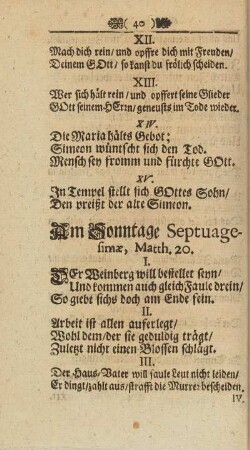 ( 40 )
XII.
Mach dich rein/ und opffre dich mit Freuden/
Deinem GOtt/ so kanst du frölich scheiden.
XIII.
Wer sich hält rein/ und opffert seine Glieder
GOtt seinem HErrn/ geneusts im Tode wieder.
XIV.
Die Maria hälts Gebot:
Simeon wüntscht sich den Tod.
Mensch sey fromm und fürchte GOtt.
XV.
In Tempel stellt sich GOttes Sohn/
Den preißt der alte Simeon.
Am Sonntage Septuage-
simæ, Matth. 20.
I.
DEr Weinberg will bestellet seyn/
Und kommen auch gleich Faule drein/
So giebt sichs doch am Ende fein.
II.
Arbeit ist allen auferlegt/
Wohl dem/ der sie geduldig trägt/
Zuletzt nicht einen Blossen schlägt.
III.
Der Haus-Vater will faule Leut nicht leiden/
Er dingt/ zahlt aus/ strafft die Murre: bescheiden.
IV.